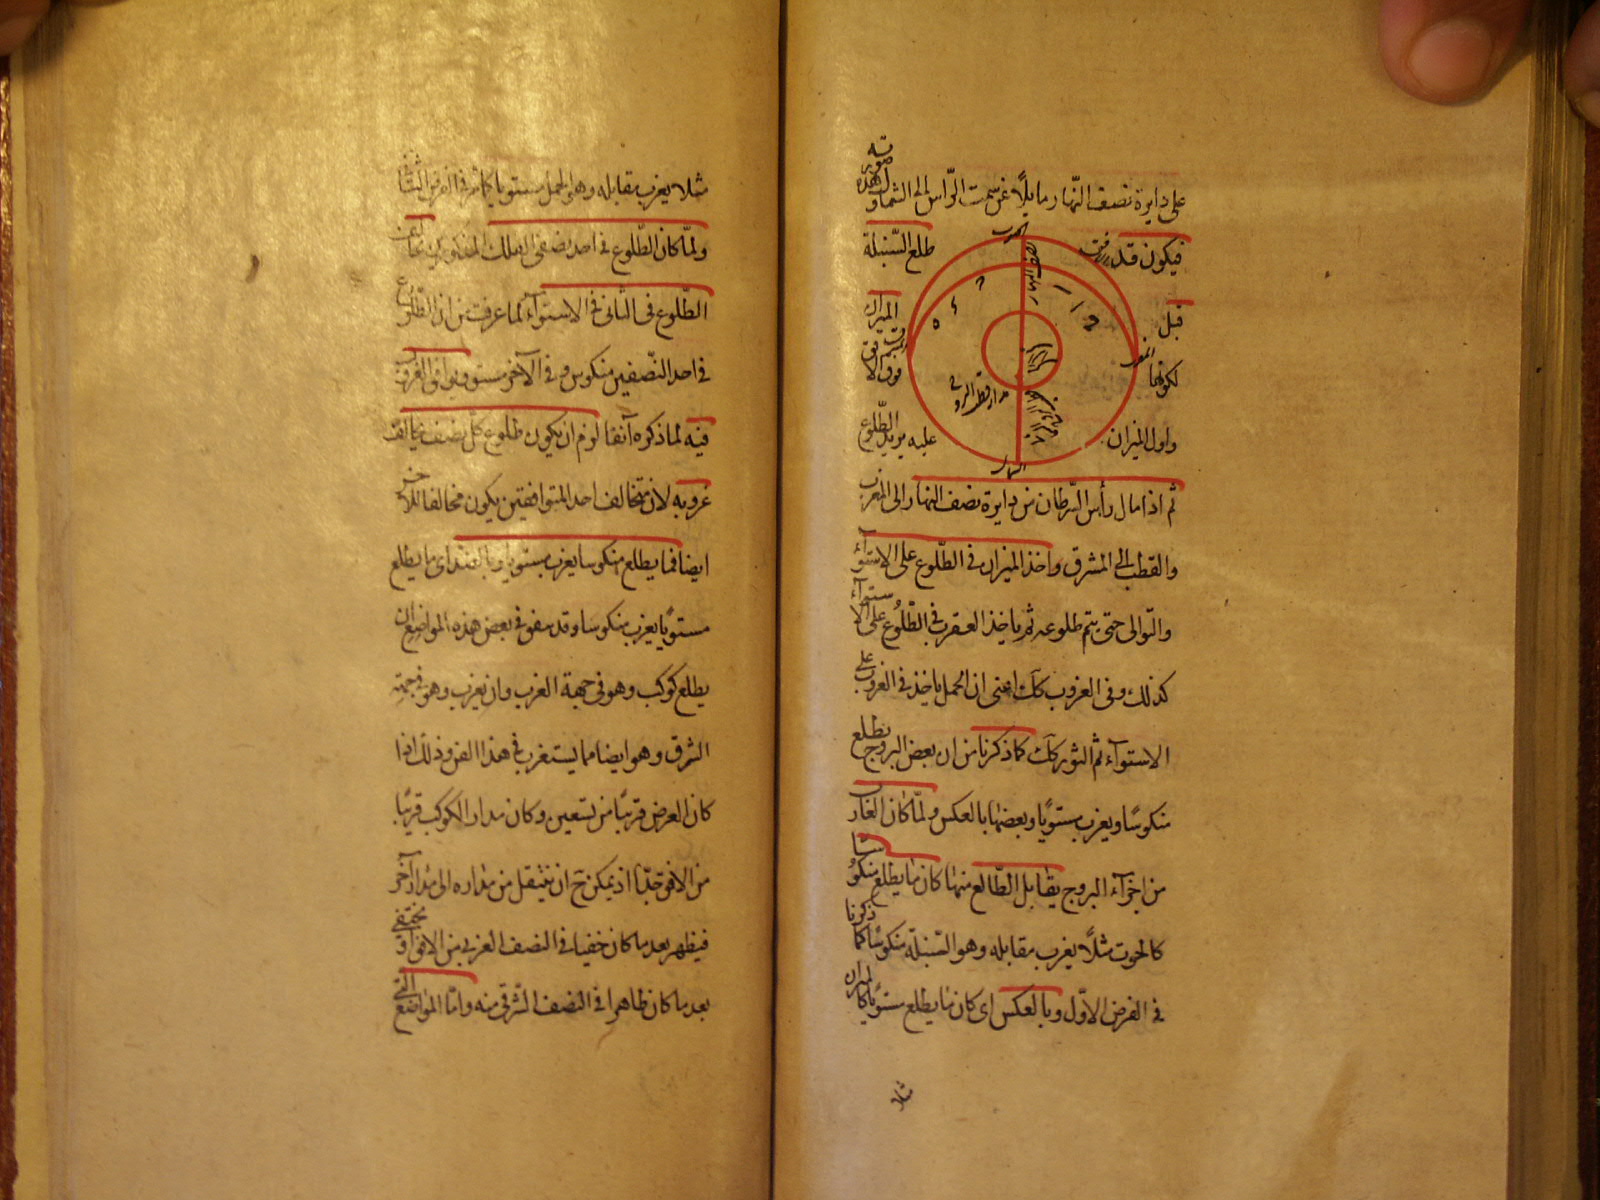 على دايرة نصف النهار مايلًا عن سمت الرّاس الى الشمال و هذه صورته
فيكون قد طلع السّنبلة
قبل الميزان
لكونها فوق الافق
واول الميزان عليه يريد الطّلوع
الجنوب
المغرب
المشرق
الشمال
مدار قطب البروج
ثم اذا مال رأس السّرطان من دايرة نصف النهار الى المغرب
والقطب الى المشرق واخذ الميزان في الطّلوع على الاستوآء
والتّوالى حتى يتم طلوعه ثم ياخذ العقرب في الطّلوع على الاستوآء
كذلك وفى الغروب كك اعنى ان الحمل ياخذ في الغروب على
الاستوآء ثم الثور كك كما ذكرنا من ان بعض البروج يطلع
منكوسًا ويغرب مستويًا وبعضها بالعكس ولمّا كان الغارب
من اجزآء البروج يقابل الطّالع منها كان ما يطلع منكوسًا
كالحوت مثلًا يغرب مقابله وهو السّنبلة منكوسًا كما ذكرنا
في الفرض الاوّل وبالعكس اى كان ما يطلع مستويًا كالميزان
مثلا
مثلا يغرب مقابله وهو الحمل مستويا كما مر في الفرض الثانى
ولمّا كان الطّلوع في احد نصفى الفلك المذكورين مخالف
الطّلوع فى الثانى في الاستوآء لما عرفت من ان الطّلوع
في احد النصّفين منكوس وفى الآخر مستو ويوافق الغروب
فيه لما ذكره آنفا لزم ان يكون طلوع كلّ نصف يخالف
غروبه لان مخالف احد المتوافقين يكون مخالفا للآخر
ايضا فما يطلع منكوسا يغرب مستويا وبالضد اى ما يطلع
مستويًا يغرب منكوسا وقد يتفق في بعض هذه المواضع ان
يطلع كوكب وهو في جهة الغرب وان يغرب وهو في جهة
الشرق وهو ايضا مما يستغرب في هذا الفن وذلك اذا
كان العرض قريبًا من تسعين وكان مدار الكوكب قريبًا
من الافق جدّا اذ يمكن ح ان ينتقل من مداره الى مدار آخر
فيظهر بعد ما كان خفيا في النصف الغربى من الافق او يختفى
بعد ما كان ظاهرا في النصف الشّرقى منه وامّا المواضع التى